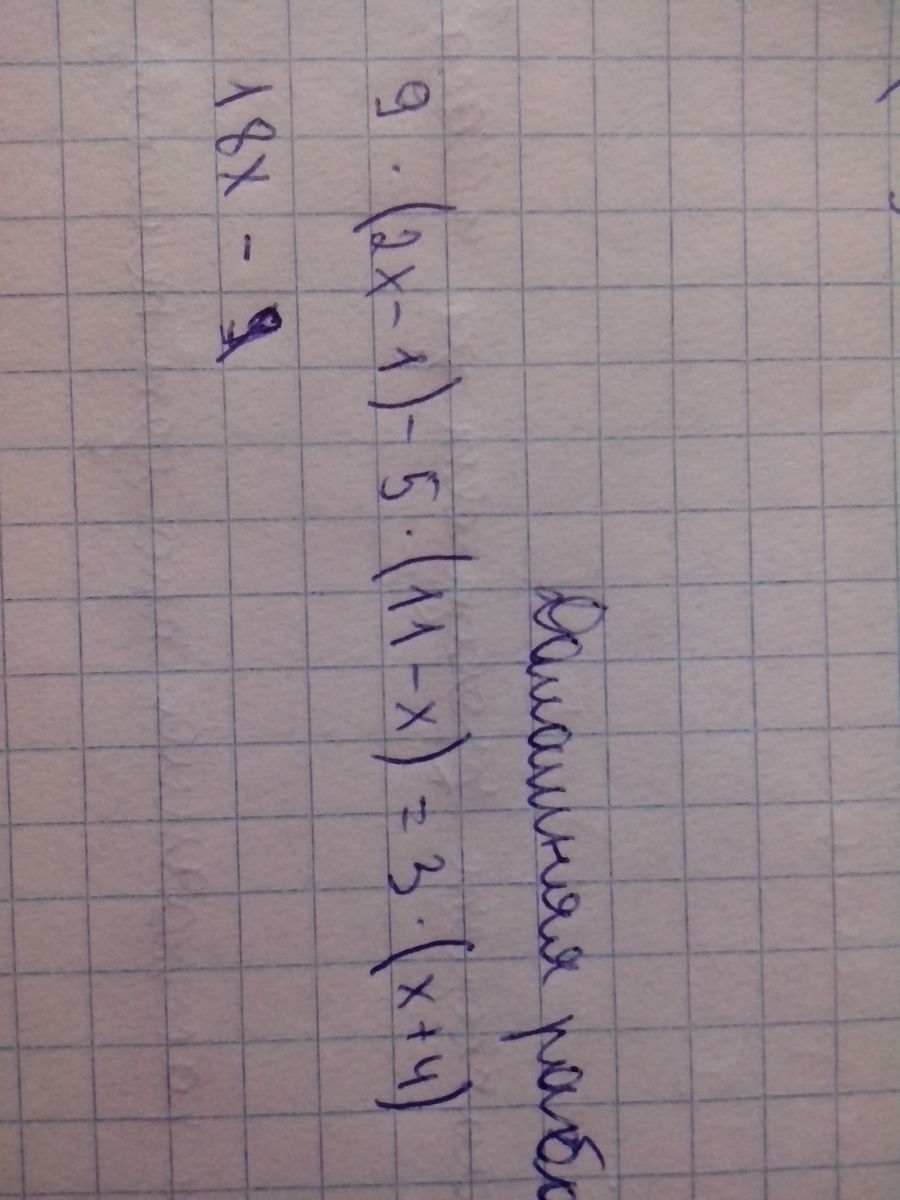 Домашняя рабо
9 · (2x - 1) - 5 · (11 - x) = 3 · (x + 4)
18x - 9